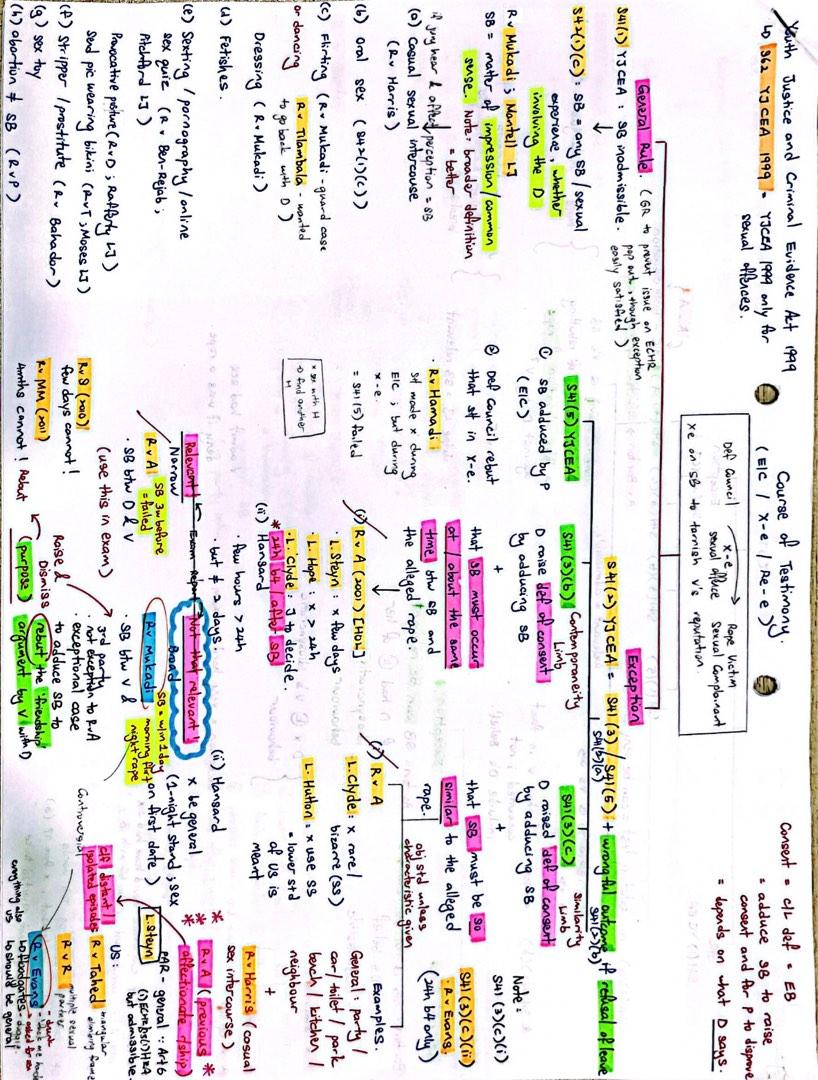 Youth Justice and Criminal Evidence Act 1999
↳ S62 YJCEA 1999 = YJCEA 1999 only for
sexual offences.
Course of Testimony.
(EIC / x-e / Re-e)
Def Council → x-e → Rape Victim
sexual offence Sexual Complainant
xe on SB to tarnish V's reputation.
Consent = c/L def = EB
= adduce SB to raise
consent and for P to disprove
= depends on what D says.
General Rule. (GR to prevent issue on ECHR
pop out, though exception
easily satisfied)
S41(1) YJCEA : SB inadmissible.
S42(1)(c) : SB = any SB / sexual
experience, whether
involving the D
R v Mukadi ; Mantell LJ
SB = matter of impression/common
sense. Note: broader definition
= better
if jury hear & affect perception = SB
(a) Casual sexual intercourse
(R v Harris)
(b) Oral sex (S42(1)(c))
(c) Flirting (R v Mukadi - guard case
or dancing R v Tilambala - wanted
to go back with D)
Dressing (R v Mukadi)
(d) Fetishes.
(e) Sexting / pornography / online
sex quiz (R v Ben-Rejab ;
Pitchford LJ)
Provocative posture (R v D ; Rafferty LJ)
Send pic wearing bikini (R v T ; Moses LJ)
(f) Stripper / prostitute (R v Bahador)
(g) sex toy
(h) abortion ≠ SB (R v P)
Exception
S41(2) YJCEA = S41(3) / S41(5) + wrongful outcome if refusal of leave
S41(2)(a) S41(2)(b)
S41(5) YJCEA
① SB adduced by P
(EIC)
② Def Council rebut
that st in x-e.
· R v Hamadi
St made x during
EIC, but during
x-e.
= S41(5) failed
x sex with H
→ find another
H
S41(3)(b) Contemporaneity
Limb
D raise def of consent
by adducing SB
+
that SB must occur
at / about the same
time btw SB and
the alleged rape.
(i) R v A (2001) [HOL]
· L. Steyn : x few days
· L. Hope : x > 24h
· L. Clyde : J to decide.
* 24h b4 / after SB
(ii) Hansard
· few hours > 24h
· but ≠ 2 days.
Relevant! ← Exam Report → Not that relevant!
Narrow Broad
R v A SB 3w before
= failed
· SB btw D & V
(use this in exam)
R v Mukadi SB = w/in 1 day
morning flirt
night rape
· SB btw V &
3rd party
· not exception to R v A
· exceptional case
to adduce SB to
rebut the 'friendship'
argument by V with D
Raise &
Dismiss
(purpose)
R v S (2010)
few days cannot!
R v MM (2011)
4mths cannot! Rebut
S41(3)(c) Similarity
Limb
D raised def of consent
by adducing SB
+
that SB must be so
similar to the alleged
rape.
obj std unless
characteristic given
(i) R v A
· L. Clyde : x rare /
bizarre (SS)
· L. Hutton : x use SS
= lower std
of US is
meant
(ii) Hansard
x be general
(1-night stand ; sex
on first date)
Note :
S41(3)(c)(i)
S41(3)(c)(ii)
· R v Evans
(24h bt only)
Examples.
General : party /
car / toilet / park
bench / kitchen /
neighbour
R v Harris (casual
sex intercourse)
+
* R v A (previous *
* affectionate r/ship)
L. Steyn
US :
c/f distant /
isolated episodes
Controversial
R v Tahed
R v R
multiple sexual
partner
R v Evans
to floodgates
anything also
US
to should be general